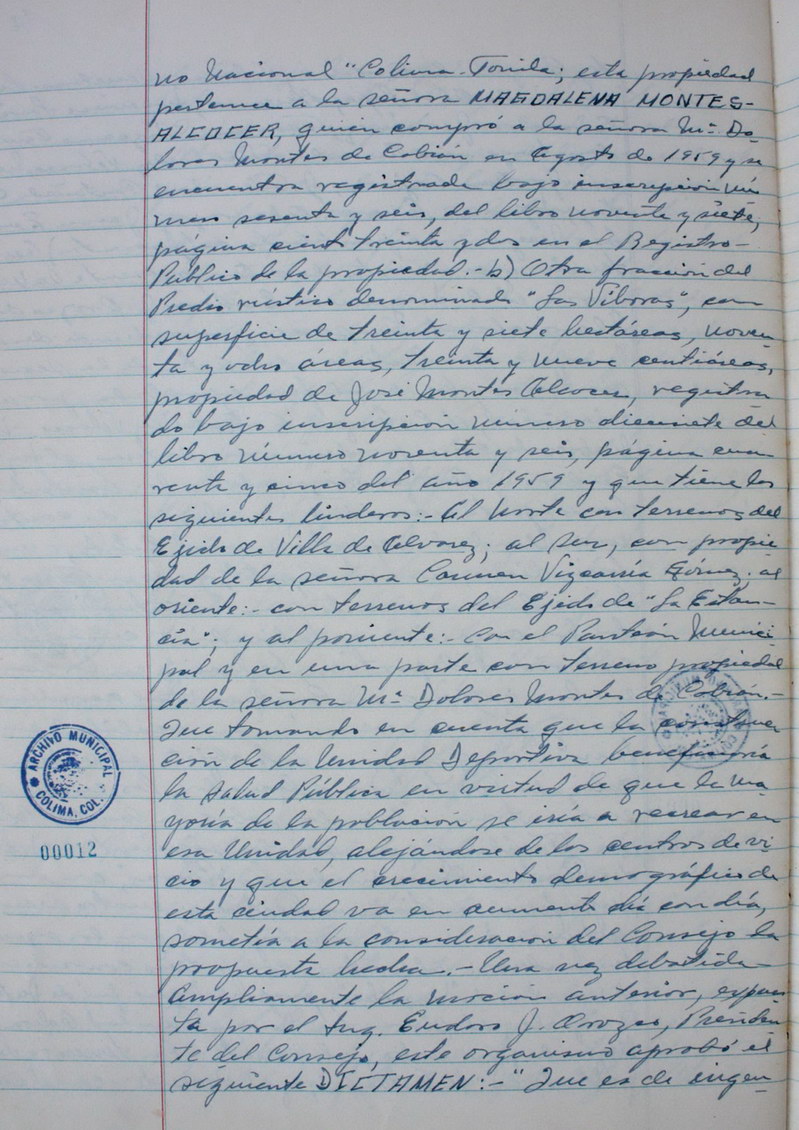 no Nacional "Colima-Tonila; esta propiedad
pertenece a la señora MAGDALENA MONTES-
ALCOCER, quien compró a la señora Mª Do
lores Montes de Cobián en Agosto de 1959 y se
encuentra registrada bajo inscripción nú
mero sesenta y seis, del libro noventa y siete,
página ciento treinta y dos en el Registro-
Público de la propiedad.- b) Otra fracción del
Predio rústico denominado "Las Víboras", con
superficie de treinta y siete hectáreas, noven
ta y ocho áreas, treinta y nueve centiáreas,
propiedad de José Montes Alcocer, registra
do bajo inscripción número diecisiete del
libro número noventa y seis, página cua
renta y cinco del año 1959 y que tiene los
siguientes linderos:- Al Norte con terrenos del
Ejido de Villa de Alvarez; al sur, con propie
dad de la señora Carmen Vizcarría Gómez; al
oriente:- con terrenos del Ejido de "La Estan-
cia"; y al poniente:- Con el Panteón Munici
pal y en una parte con terreno propiedad
de la señora Mª Dolores Montes de Cobián.-
Que tomando en cuenta que la construc
ción de la Unidad Deportiva beneficiaría
la salud Pública en virtud de que la ma
yoría de la población se iría a recrear en
esa Unidad, alejándose de los centros de vi
cio y que el crecimiento demográfico de
esta ciudad va en aumento día con día,
sometía a la consideración del Consejo la
propuesta hecha.- Una vez debatida
ampliamente la moción anterior, expues
ta por el Ing. Eudoro J. Orozco, Presiden
te del Consejo, este organismo aprobó el
siguiente DICTAMEN:- "Que es de ingen
ARCHIVO MUNICIPAL
COLIMA, COL.
00012